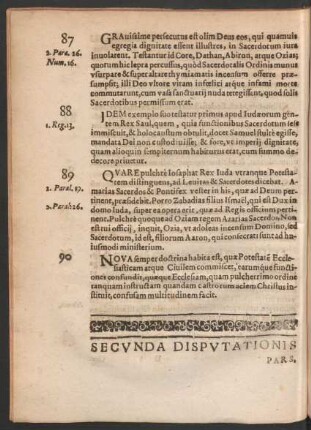 87
2. Para. 26.
Num. 16.
GRauissime persecutus est olim Deus eos, qui quamuis
egregia dignitate essent illustres, in Sacerdotum iura
inuolarent. Testantur id Core, Dathan, Abiron, atque Ozias;
quorum hic lepra percussus, quòd Sacerdotalis Ordinis munus
vsurpare & super altare thymiamatis incensum offerre præ-
sumpsit; illi Deo vltore vitam infœlici atque infami morte
commutarunt, cum vasa sanctuarij nuda tetigissent, quod solis
Sacerdotibus permissum erat.
88
1. Reg. 13.
IDEM exemplo suo testatur primus apud Iudæorum gen-
tem Rex Saul, quem, quia functionibus Sacerdotum sese
immiscuit, & holocaustum obtulit, docet Samuel stultè egisse,
mandata Dei non custodiuisse, & fore, vt imperij dignitate,
quam confirmatam habiturus erat, cum summo dede-
core priuetur.
89
2. Paral. 19.
2. Paral. 26.
QVARE pulchrè Iosaphat Rex Iuda vtranque Potesta-
tem distinguens, ad Leuitas & Sacerdotes dicebat. A-
marias Sacerdos & Pontifex vester in his, quæ ad Deum per-
tinent, præsidebit. Porro Zabadias filius Ismael, qui est Dux in
domo Iuda, super ea opera erit, quæ ad Regis officium perti-
nent. Pulchrè quoque ad Oziam regem Azarias Sacerdos Non
est tui officij, inquit, Ozia, vt adoleas incensum Domino, sed
Sacerdotum, id est, filiorum Aaron, qui consecrati sunt ad hu-
iusmodi ministerium.
90
NOVA semper doctrina habita est, quæ Potestatẽ Eccle-
siasticam atque Ciuilem commiscet, earumque functio-
nes confundit; quæque Ecclesiam, quam pulcherrimo ordine
tanquam instructam quandam castrorum aciem Christus in-
stituit, confusam multitudinem facit.
SECVNDA DISPVTATIONIS
PARS.